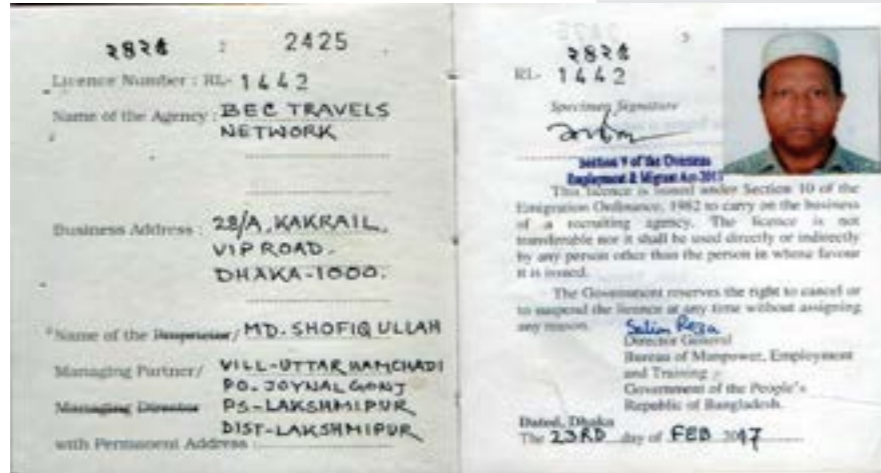 ২৪২৫ 2 2425
Licence Number : RL- 1442
Name of the Agency : BEC TRAVELS
NETWORK
Business Address : 28/A, KAKRAIL,
VIP ROAD.
DHAKA-1000.
Name of the Proprietor/ MD. SHOFIQ ULLAH
Managing Partner/ VILL-UTTAR HAMCHADI
PO. JOYNAL GONJ
Managing Director PS-LAKSHMIPUR
DIST-LAKSHMIPUR
with Permanent Address :
3
২৪২৫
RL- 1442
Specimen Signature
Section 9 of the Overseas
Employment & Migrant Act-2013
This licence is issued under Section 10 of the
Emigration Ordinance, 1982 to carry on the business
of a recruiting agency. The licence is not
transferable nor it shall be used directly or indirectly
by any person other than the person in whose favour
it is issued.
The Government reserves the right to cancel or
to suspend the licence at any time without assigning
any reason.
Salim Reza
Director General
Bureau of Manpower, Employment
and Training
Government of the People's
Republic of Bangladesh.
Dated, Dhaka
The 23RD day of FEB 2017